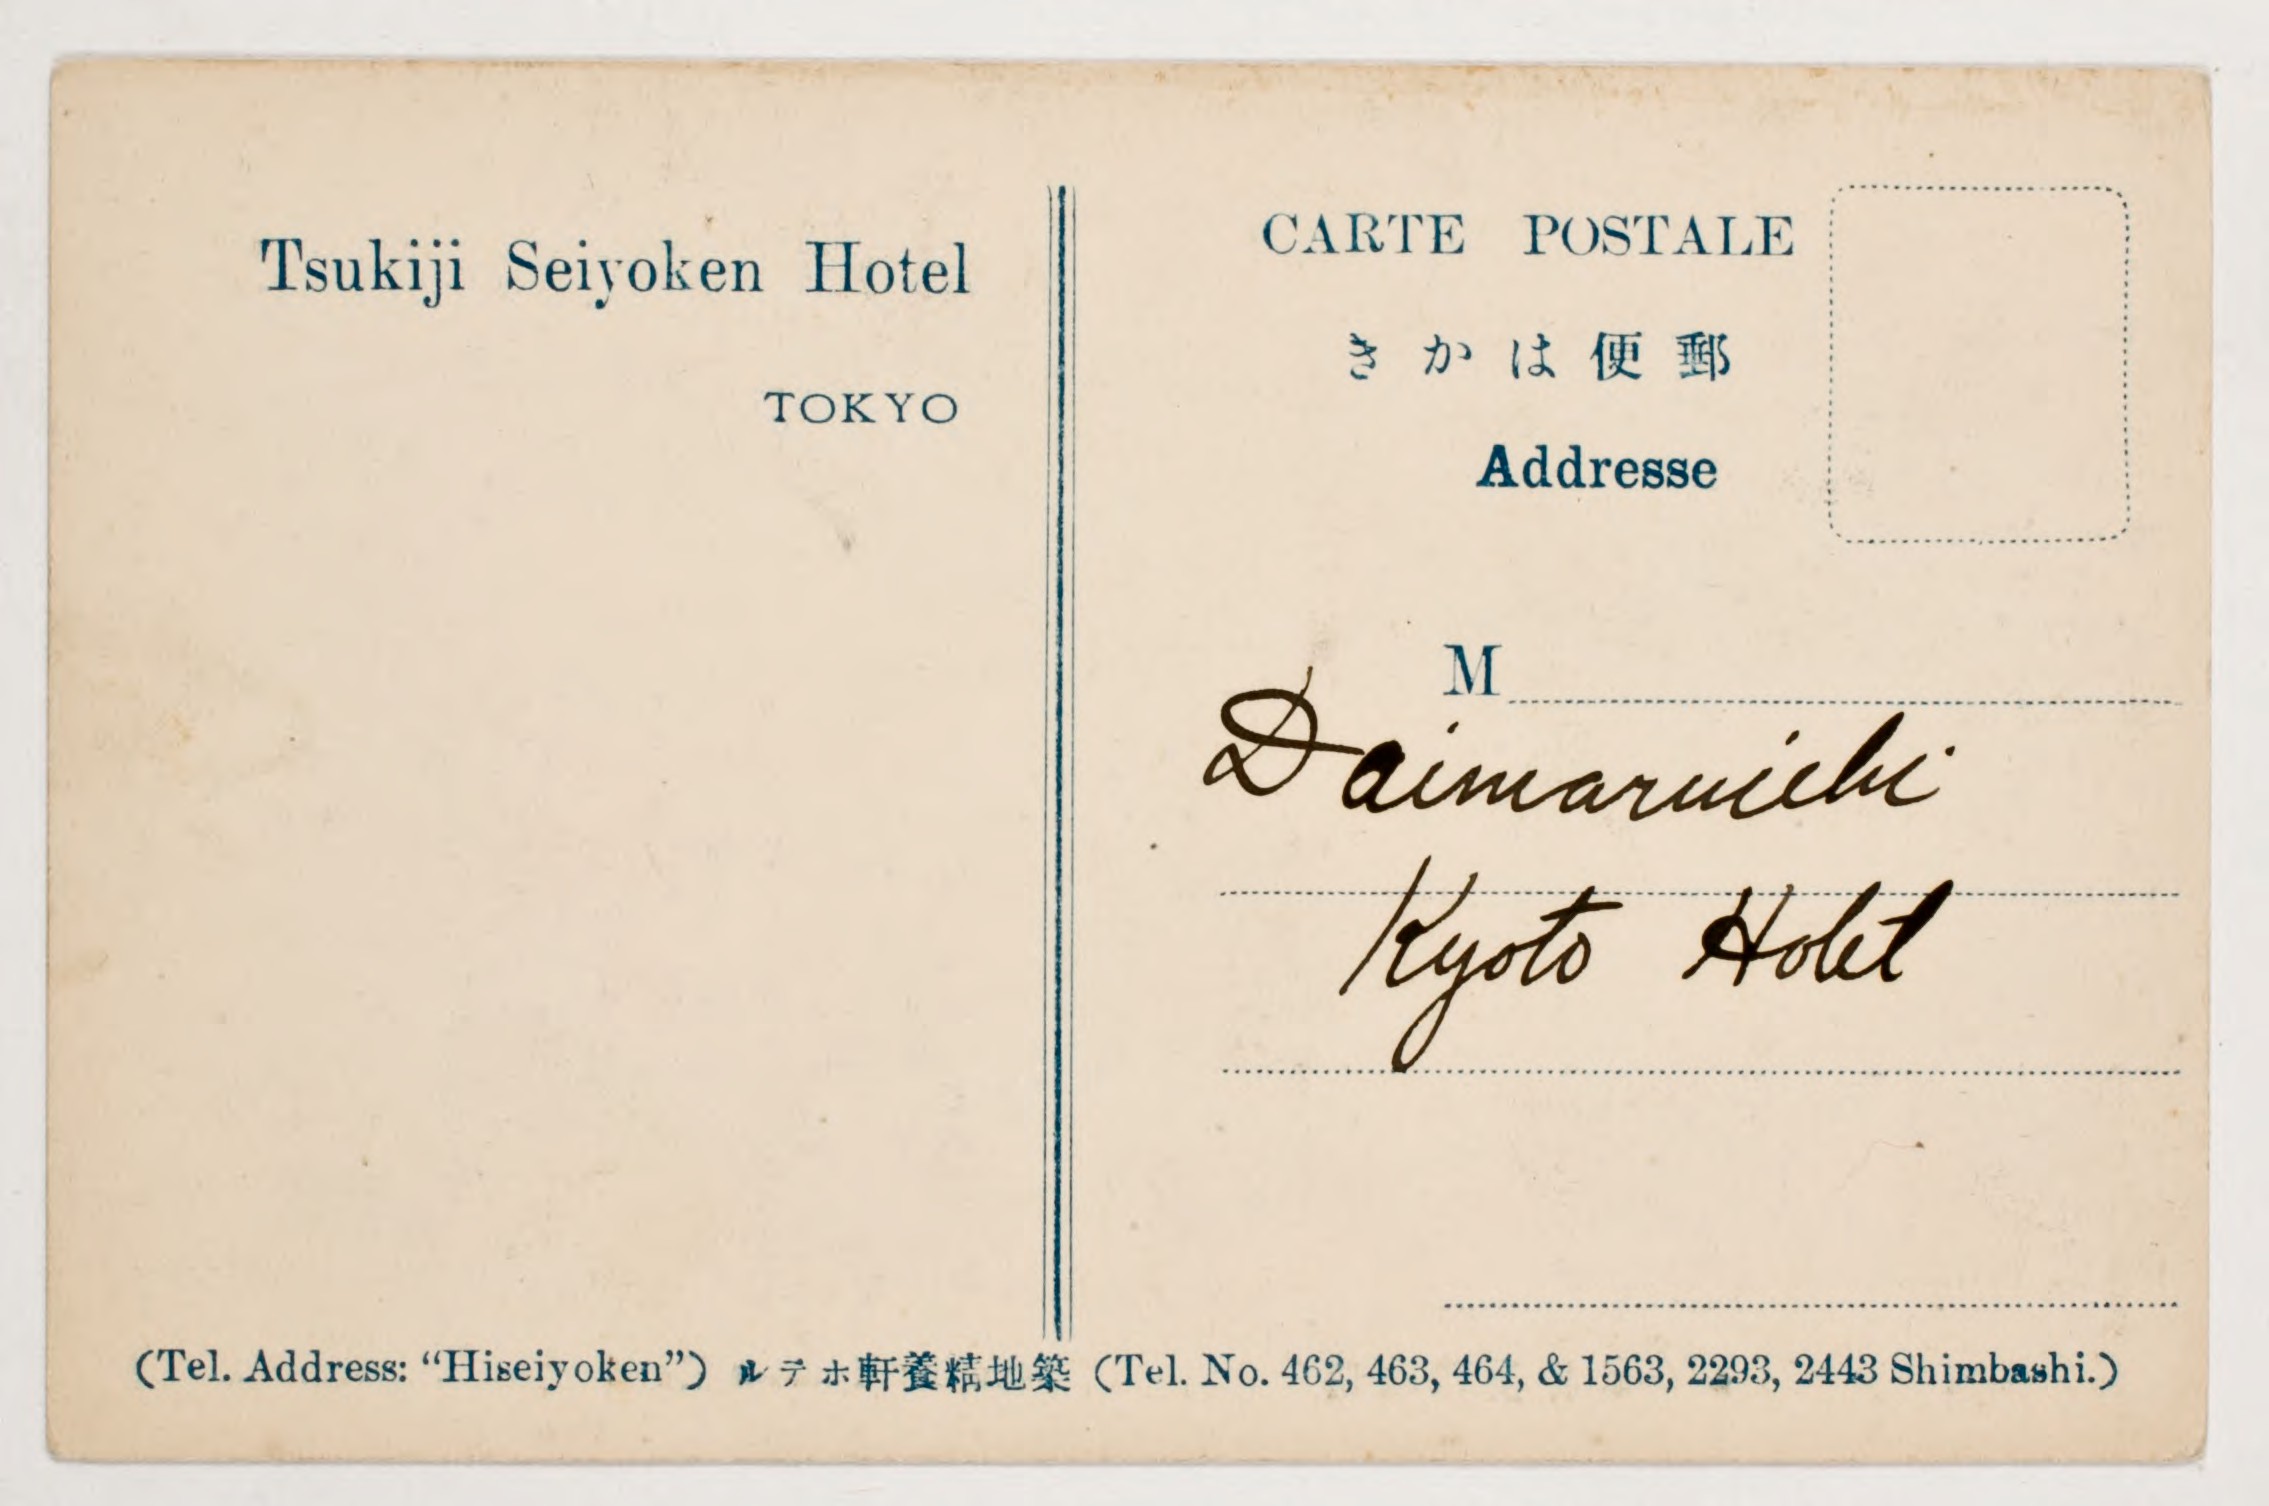 Tsukiji Seiyoken Hotel
TOKYO
CARTE POSTALE
きかは便郵
Addresse
M
Daimaruichi
Kyoto Hotel
(Tel. Address: “Hiseiyoken”) ルテホ軒養精地築 (Tel. No. 462, 463, 464, & 1563, 2293, 2443 Shimbashi.)